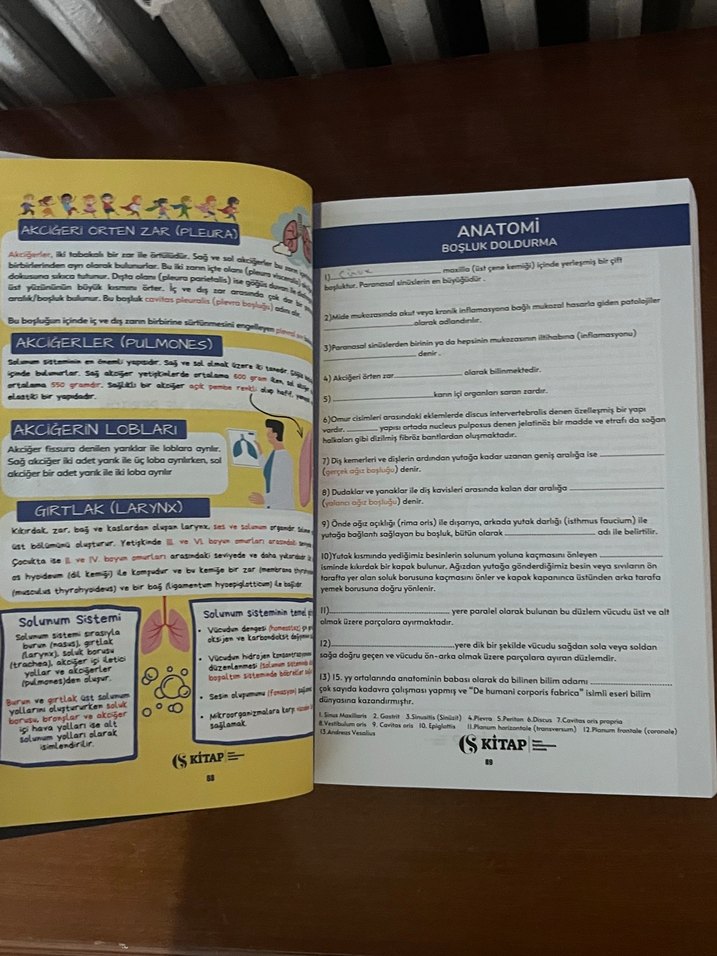 AKCİĞERİ ÖRTEN ZAR (PLEURA)
Akciğerler, iki tabakalı bir zar ile örtülüdür. Sağ ve sol akciğerler bu zarın
birbirlerinden ayrı olarak bulunurlar. Bu iki zarın içte olanı (pleura visceralis)
dokusuna sıkıca tutunur. Dışta olanı (pleura parietalis) ise göğüs duvarı ile
üst yüzününün büyük kısmını örter. İç ve dış zar arasında çok dar bir
aralık/boşluk bulunur. Bu boşluk cavitas pleuralis (plevra boşluğu) adını alır.
Bu boşluğun içinde iç ve dış zarın birbirine sürtünmesini engelleyen
AKCİĞERLER (PULMONES)
Solunum sisteminin en önemli yapısıdır. Sağ ve sol olmak üzere iki tanedir.
içinde bulunurlar. Sağ akciğer yetişkinlerde ortalama 600 gram iken, sol akciğer
ortalama 550 gramdır. Sağlıklı bir akciğer açık pembe renkli olup hafif,
elastiki bir yapıdadır.
AKCİĞERİN LOBLARI
Akciğer fissura denilen yarıklar ile loblara ayrılır.
Sağ akciğer iki adet yarık ile üç loba ayrılırken, sol
akciğer bir adet yarık ile iki loba ayrılır
GIRTLAK (LARYNX)
Kıkırdak, zar, bağ ve kaslardan oluşan larynx, ses ve solunum organıdır.
üst bölümünü oluşturur. Yetişkinde III. ve VI. boyun omurları arasındaki
Çocukta ise II. ve IV. boyun omurları arasındaki seviyede ve daha yukarıdadır.
os hyoideum (dil kemiği) ile komşudur ve bu kemiğe bir zar (membrana
(musculus thyrohyoideus) ve bir bağ (ligamentum hyoepiglotticum) ile bağlıdır.
Solunum Sistemi
Solunum sistemi sırasıyla
burun (nasus), gırtlak
(larynx), soluk borusu
(trachea), akciğer içi iletici
yollar ve akciğerler
(pulmones)den oluşur.
Burun ve gırtlak üst solunum
yollarını oluştururken soluk
borusu, bronşlar ve akciğer
içi hava yolları ise alt
solunum yolları olarak
isimlendirilir.
Solunum sisteminin temel
• Vücudun dengesi (homeostaz)
oksijen ve karbondioksit
• Vücudun hidrojen konsantrasyonu
düzenlenmesi
boşaltım sisteminde böbrekler
• Sesin oluşumunu (Fonasyon)
• Mikroorganizmalara karşı
sağlamak.
KİTAP
88
ANATOMİ
BOŞLUK DOLDURMA
1)__Sinus__________ maxilla (üst çene kemiği) içinde yerleşmiş bir çift
boşluktur. Paranasal sinüslerin en büyüğüdür .
2)Mide mukozasında akut veya kronik inflamasyona bağlı mukozal hasarla giden patolojiler
____________olarak adlandırılır.
3)Paranasal sinüslerden birinin ya da hepsinin mukozasının iltihabına (inflamasyonu)
____________ denir .
4) Akciğeri örten zar____________ olarak bilinmektedir.
5) ____________ karın içi organları saran zardır.
6)Omur cisimleri arasındaki eklemlerde discus intervertebralis denen özelleşmiş bir yapı
vardır. ______ yapısı ortada nucleus pulposus denen jelatinöz bir madde ve etrafı da soğan
halkaları gibi dizilmiş fibröz bantlardan oluşmaktadır.
7) Diş kemerleri ve dişlerin ardından yutağa kadar uzanan geniş aralığa ise ____________
(gerçek ağız boşluğu) denir.
8) Dudaklar ve yanaklar ile diş kavisleri arasında kalan dar aralığa ____________
(yalancı ağız boşluğu) denir.
9) Önde ağız açıklığı (rima oris) ile dışarıya, arkada yutak darlığı (isthmus faucium) ile
yutağa bağlantı sağlayan bu boşluk, bütün olarak ____________ adı ile belirtilir.
10)Yutak kısmında yediğimiz besinlerin solunum yoluna kaçmasını önleyen ____________
isminde kıkırdak bir kapak bulunur. Ağızdan yutağa gönderdiğimiz besin veya sıvıların ön
tarafta yer alan soluk borusuna kaçmasını önler ve kapak kapanınca üstünden arka tarafa
yemek borusuna doğru yönlenir.
11)____________ yere paralel olarak bulunan bu düzlem vücudu üst ve alt
olmak üzere parçalara ayırmaktadır.
12)____________yere dik bir şekilde vücudu sağdan sola veya soldan
sağa doğru geçen ve vücudu ön-arka olmak üzere parçalara ayıran düzlemdir.
13) 15. yy ortalarında anatominin babası olarak da bilinen bilim adamı ____________
çok sayıda kadavra çalışması yapmış ve "De humani corporis fabrica" isimli eseri bilim
dünyasına kazandırmıştır.
1. Sinus Maxillaris 2. Gastrit 3.Sinusitis (Sinüzit) 4.Plevra 5.Periton 6.Discus 7.Cavitas oris propria
8.Vestibulum oris 9. Cavitas oris 10. Epiglottis 11.Planum horizontale (transversum) 12.Planum frontale (coronale)
13.Andreas Vesalius
KİTAP
89